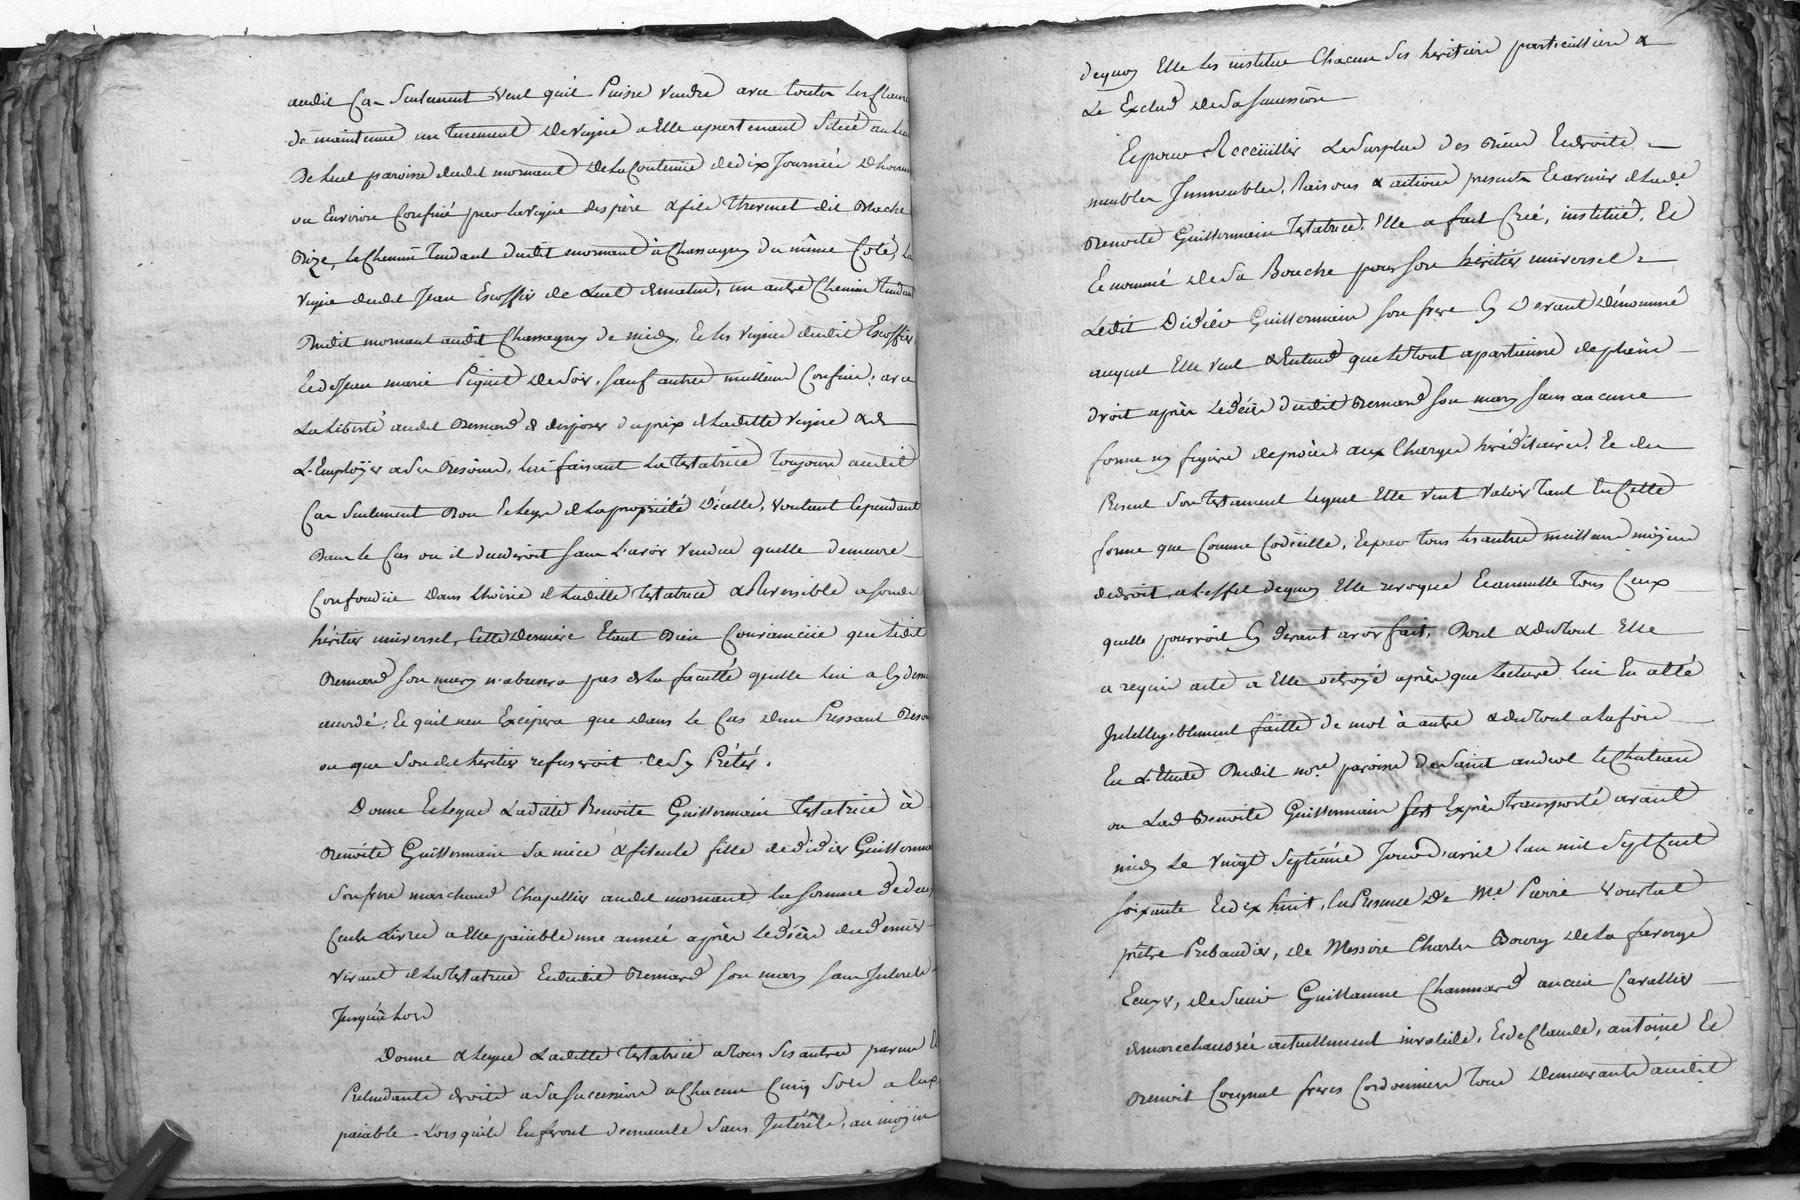 audit Cas Seulement veut quil Puisse vendre avec toutes les Clauses
de maintenue un tenement de vigne a Elle apartenant Situé au lieu
De Luel paroisse dudit mornant De la Contenüe de dix Journées d'homme
ou Environ Confiné par la vigne des père & fils thermet dit Blache
Bize, le Chemin tendant dudit mornant à Chassagny du même Coté, La
vigne dudit Jean Escoffier de Luel de matin, un autre Chemin tendant
Dudit mornant audit Chassagny de midy, Et les vignes dudit Escoffier
Et de Jean marie Piquet de Soir, Sauf autres meilleurs Confins, avec
La Liberté audit Bernard de disposer du prix de Laditte vigne & de
L'Employer a Ses Besoins, lui faisant La testatrice toujours audit
Cas Seulement Don & Legs de la propriété d'icelle, voulant Cependant
Dans le Cas ou il decederoit Sans L'avoir vendue quelle demeure
Confondüe dans L'hoirie de Laditte testatrice & Reversible a Sondit
héritier universel, Cette derniere Etant Bien Convaincüe que Ledit
Bernard Son mary n'abusera pas de La faculté quelle lui a Cy dessus
acordé, Et quil nen Excipera que dans le Cas dun Pressant Besoin
ou que Sondit heritier refuseroit de S'y Préter.
Donne & Legue Laditte Benoite Guillermain testatrice à
Benoite Guillermain Sa niece & filleule fille de didier Guillermain
Son frere marchand Chapellier audit mornant La Somme de deux
Cents Livres a Elle païable une année après Le décès du dernier
vivant de La testatrice Et dudit Bernard Son mary Sans Interets
Jusqu'alors
Donne & Legue Laditte testatrice a tous Ses autres parens
Pretendants droits a Sa Succession a Chacun Cinq Sols a Eux
païable Lorsquils En feront demande Sans Intérêts, au moyen
dequoy Elle les institue Chacun Ses héritiers particulliers &
Les Exclud de Sa Succession
Et pour Receüillir Le Surplus des Biens Et droits
meubles Immeubles, Raisons & actions presents Et avenir de Lade
Benoite Guillermain testatrice, Elle a fait Créé, institué, Et
Et nommé de Sa Bouche pour Son héritier universel
Ledit Didier Guillermain Son frere Cy Devant Dénommé
auquel Elle veut & Entend que Le tout apartienne de plein
droit après Le décès dudit Bernard Son mary Sans aucune
forme ny figure de procès aux Charges héréditaires, Et du
Present Son testament Lequel Elle veut valoir tant En Cette
forme que Comme Codicille, Et par tous les autres meilleurs moyens
de droit a L'effet dequoy Elle revoque Et annulle tous Ceux
quelle pourroit Cy devant avoir fait, Dont & du tout Elle
a requis acte a Elle octroyé après que Lecture lui En a été
Intelligiblement faitte de mot à autre & du tout a La fois
En L'Etude Dudit nore paroisse de Saint andeol Le Chateau
ou Lad Benoite Guillermain Sest Exprès transporté avant
midy Le vingt Septième Jour d'avril L'an mil Sept Cent
Soixante Et dix huit, En Presence De Me Pierre
prêtre Prebandier, de Messire Charles De La
Ecuyer, de Sieur Guillaume Chamard ancien Cavallier
de marechaussée actuellement invalide, Et de Claude, antoine Et
Benoit freres Cordonniers tous Demeurants audit